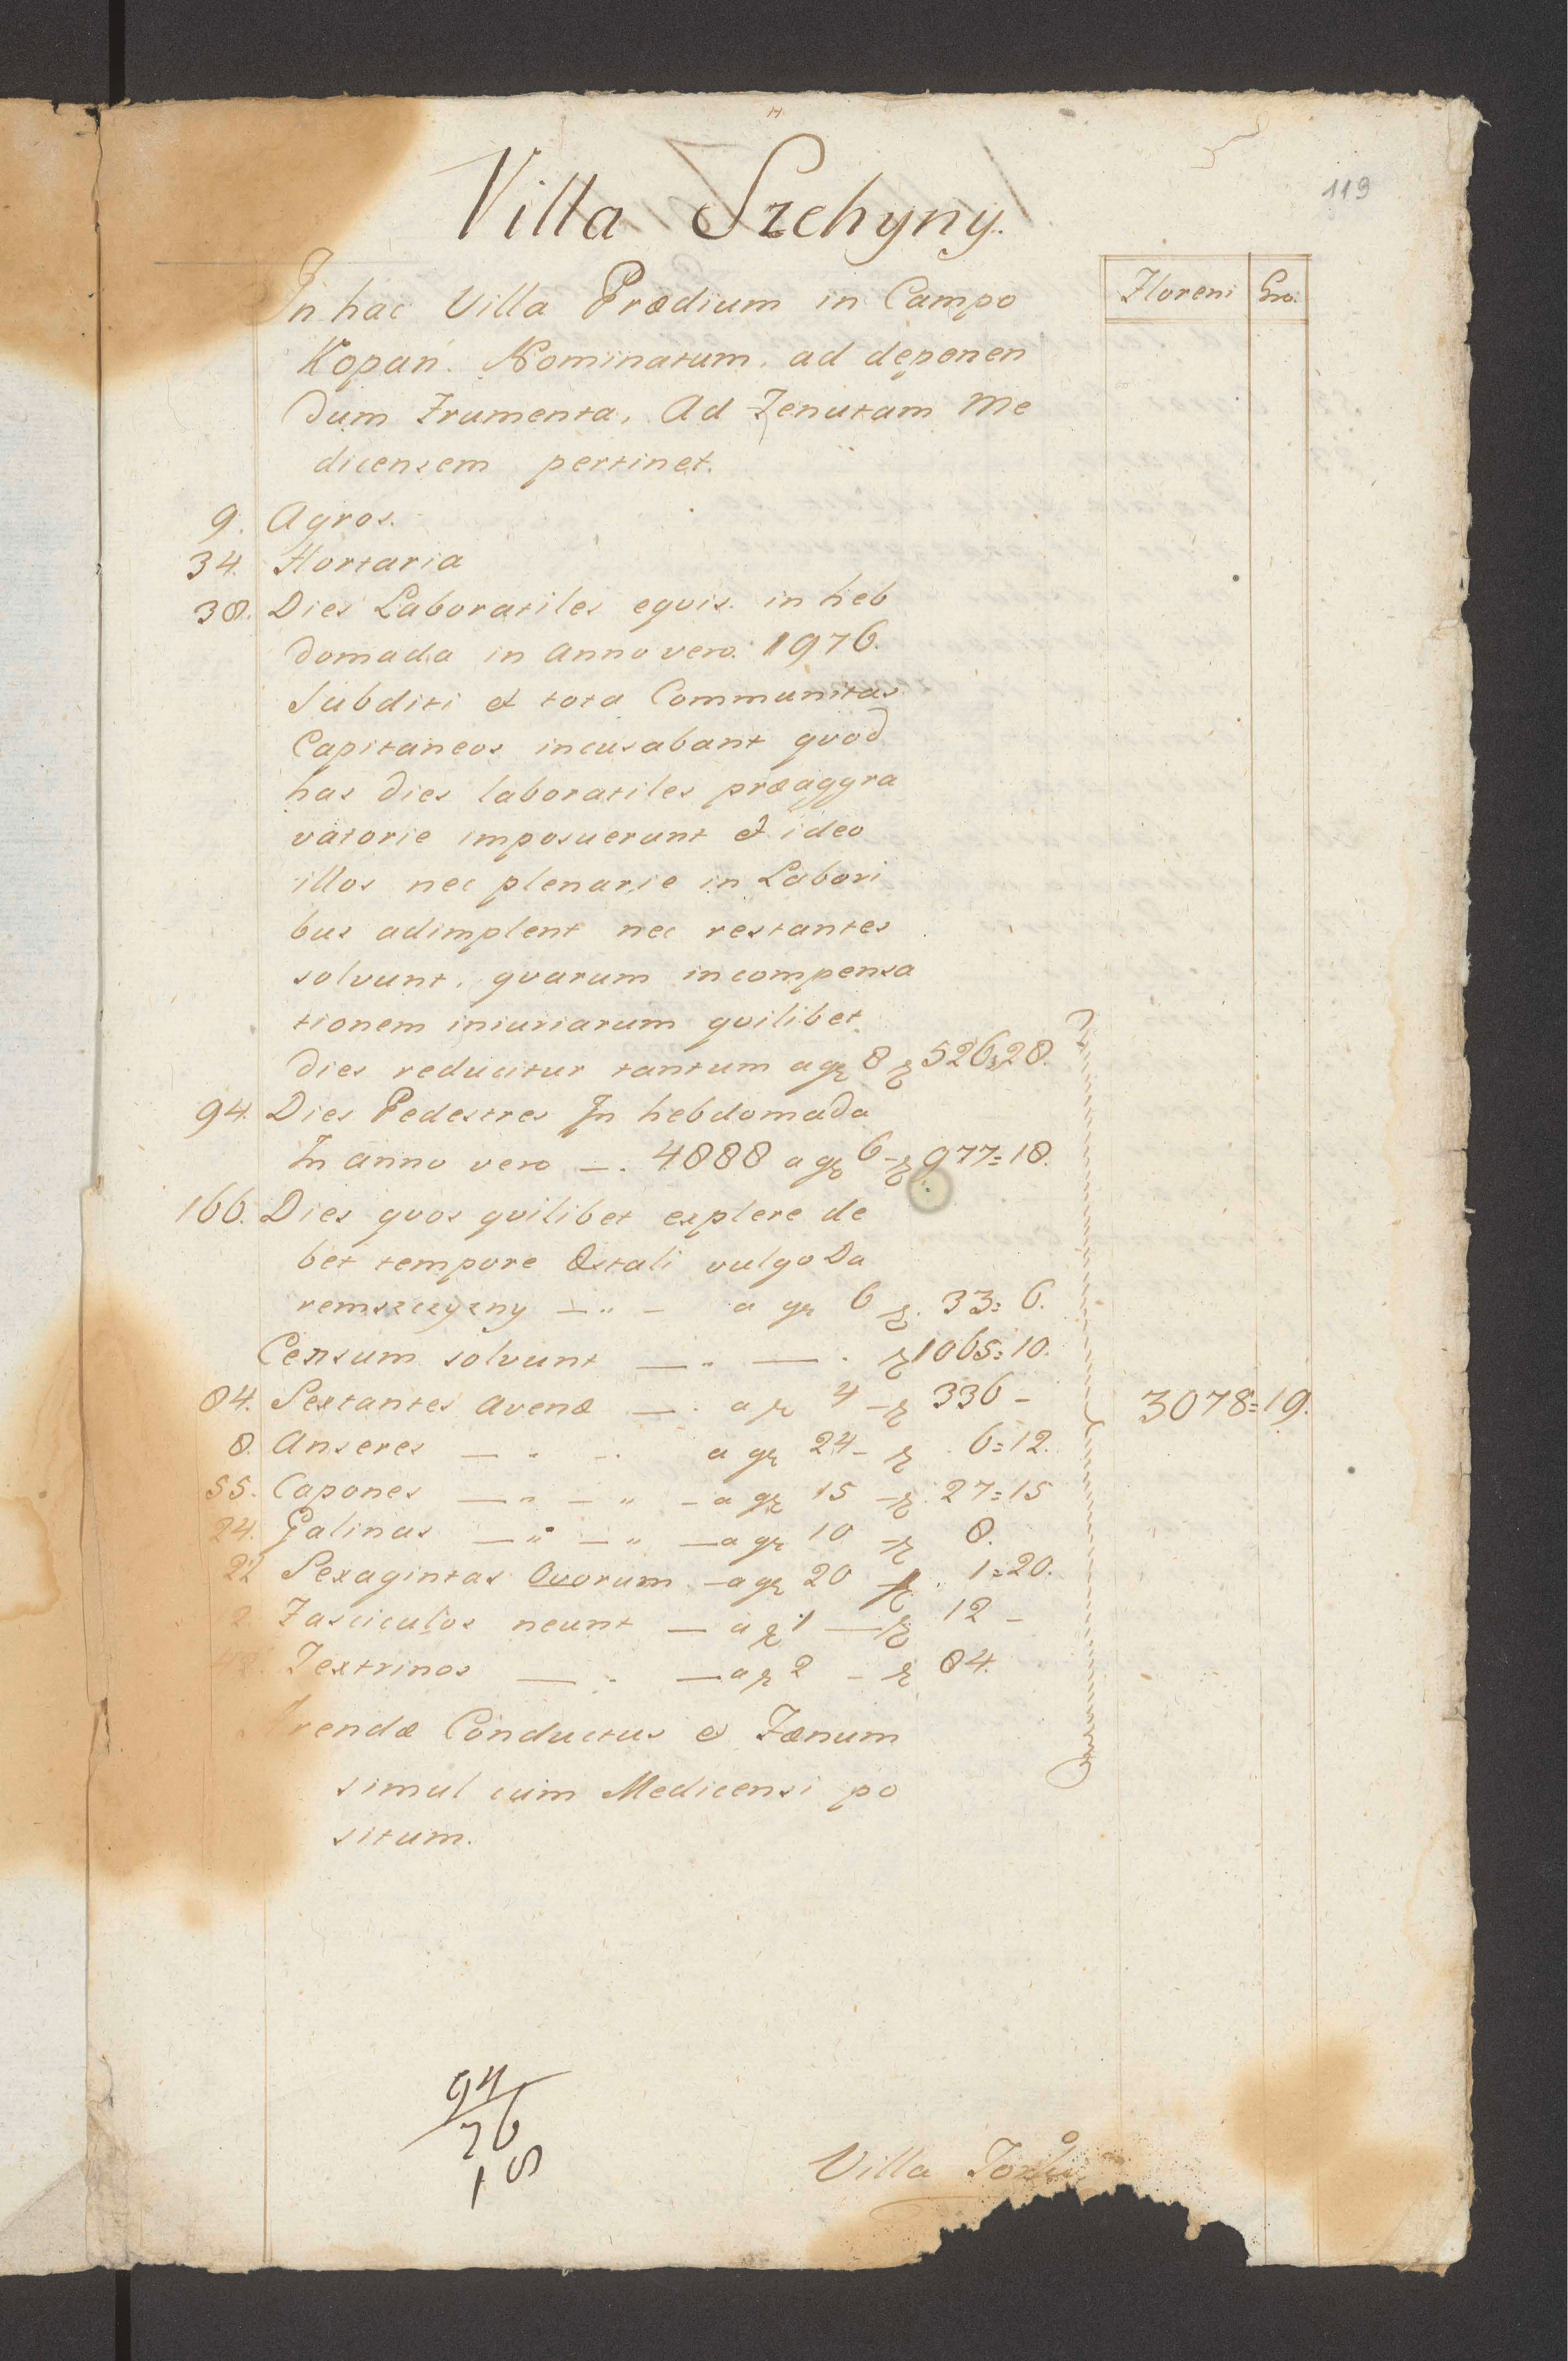 119
Villa Szehyny.
Floreni Gro.
In hac Villa Prædium in Campo
Kopań. Nominatum. ad deponen
dum Frumenta, Ad Tenutam Me
dicensem pertinet.
9. Agros.
34. Hortaria
38. Dies Laboratiles equis. in heb
domada in Anno vero. 1976.
Subditi et tota Communitas
Capitaneos incusabant quod
has dies laboratiles præaggra
vatorie imposuerunt et ideo
illos nec plenarie in Labori
bus adimplent nec restantes
solvunt, quarum incompensa
tionem iniuriarum quilibet
dies reducitur tantum a gr 8 zł 526=28.
94. Dies Pedestres In hebdomada
In anno vero —. 4888 a gr 6 – zł 977=18.
166. Dies quos quilibet explere de
bet tempore Æstali vulgo Da
remszczyzny — " — a gr 6 zł. 33=6.
Censum solvunt — . — . zł 1065=10.
84. Sextantes avenæ — . a zł 4 – zł 336 –
3078=19.
8. Anseres — " — . a gr 24 – zł 6=12.
55. Capones — " — " – a gr 15 – zł 27=15
24. Galinas — " — " — a gr 10 – zł 8.
2½ Sexagintas Ovorum – a gr 20 – zł. 1=20.
12 Fasciculos neunt — a zł 1 — zł 12 –
42. Textrinos — . — a zł 2 – zł 84.
Arendæ Conductus et Fænum
simul cum Medicensi po
situm.
94
76
18
Villa